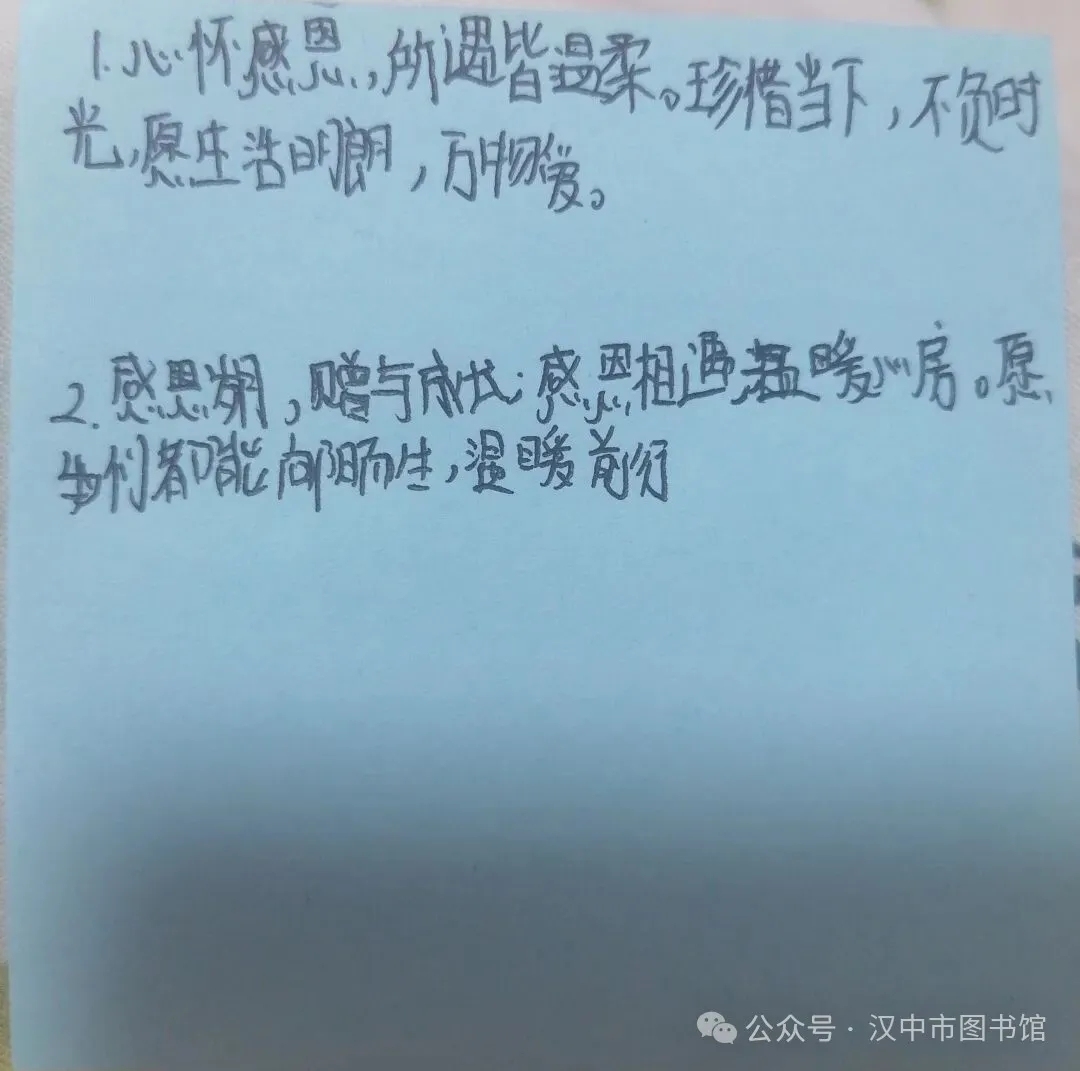 1.心怀感恩,所遇皆温柔。珍惜当下,不负时
光,愿生活明朗,万物爱。
2.感恩,赠与成长:感恩相遇,温暖心房。愿
我们都能向阳而生,温暖前行
公众号·汉中市图书馆